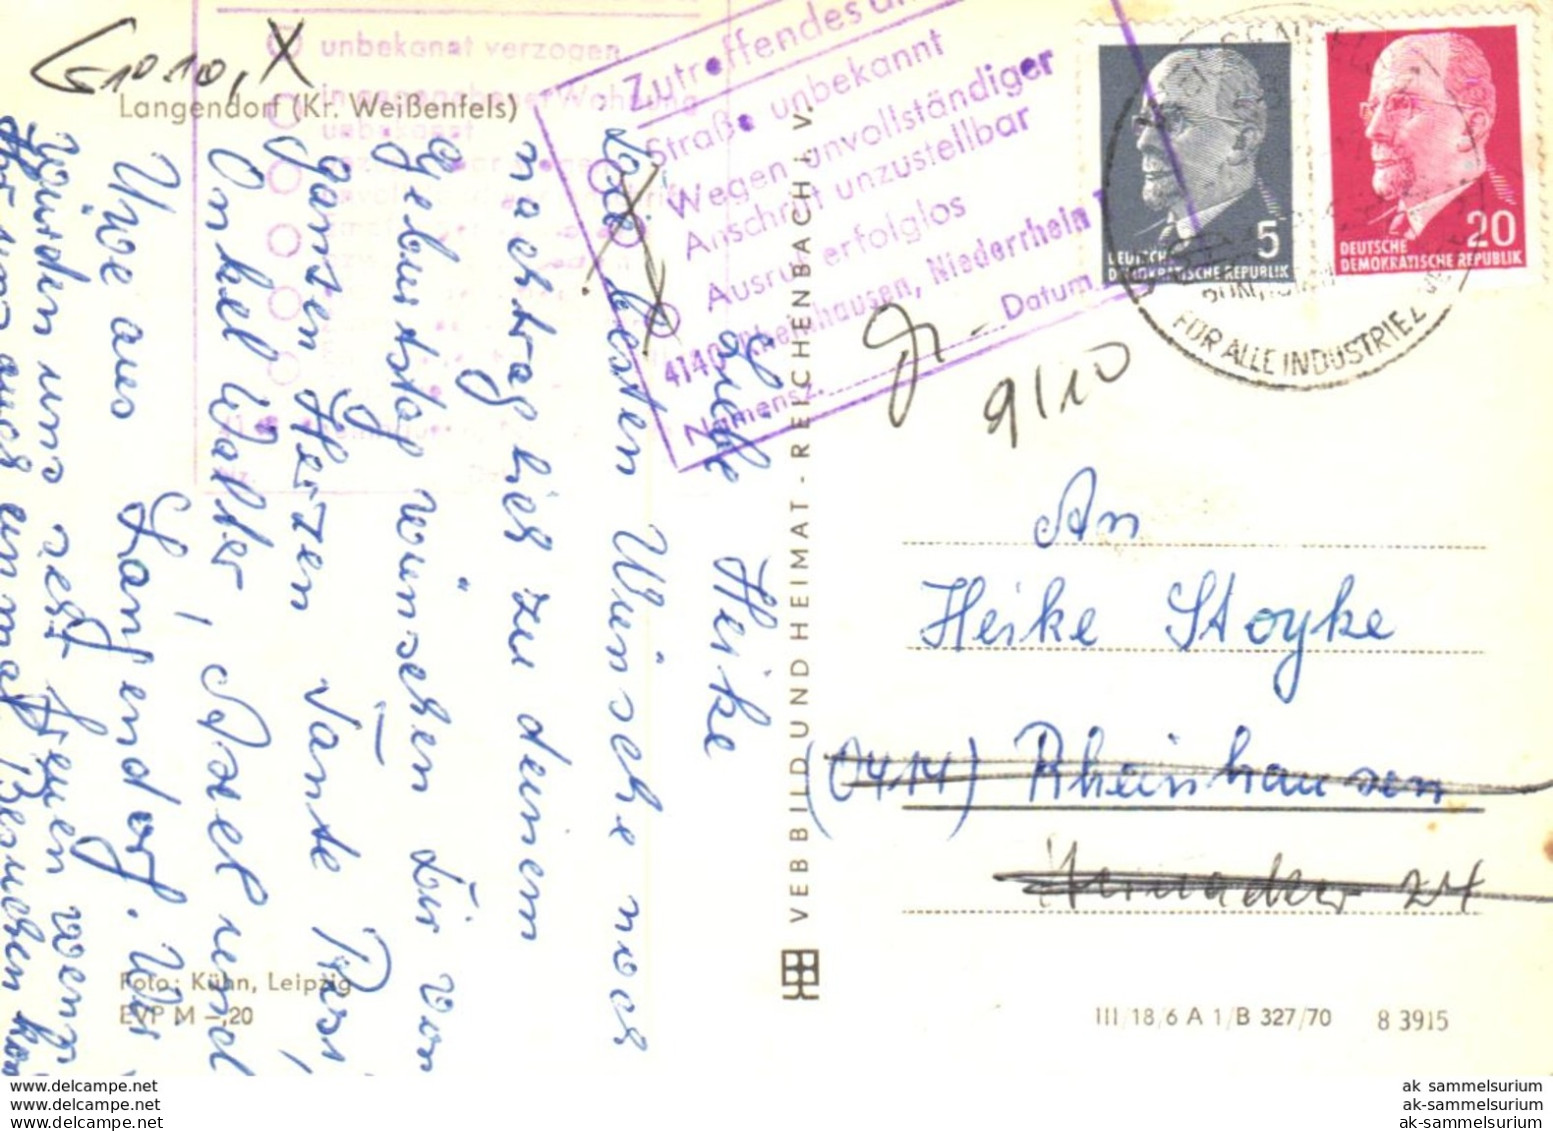 Langendorf (Kr. Weißenfels)
unbekannt verzogen
unbekannt
Zutreffendes
Straße unbekannt
Wegen unvollständiger
Anschrift unzustellbar
Ausruf erfolglos
4140 Rheinhausen, Niederrhein 1
Namensz. Datum
5
DEUTSCHE
DEMOKRATISCHE REPUBLIK
20
DEUTSCHE
DEMOKRATISCHE REPUBLIK
FÜR ALLE INDUSTRIEZ
9/10
Liebe Heike
die besten Wünsche noch
nachträglich zu deinem
Geburtstag wünschen dir von
ganzen Herzen Tante Resi,
Onkel Walter, Axel und
Uwe aus Langendorf. Wir
würden uns sehr freuen wenn
ihr uns auch einmal besuchen
An
Heike Stoyke
(0414) Rheinhausen
24
VEB BILD UND HEIMAT - REICHENBACH I. V.
Foto: Kühn, Leipzig
EVP M -,20
III/18/6 A 1/B 327/70 8 3915
www.delcampe.net
www.delcampe.net
www.delcampe.net
ak_sammelsurium
ak-sammelsurium
ak-sammelsurium